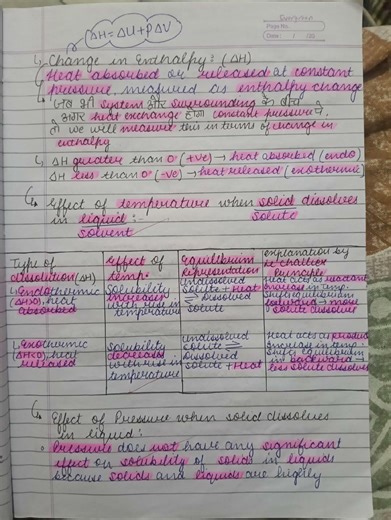 ΔH = ΔU + PΔV
Page No.
Date
Change in Enthalpy: (ΔH)
Heat absorbed or released at constant
pressure, measured as enthalpy change
जब भी system और surrounding के बीच
अगर heat exchange होगा constant pressure पे,
तो we will measure this in terms of change in
enthalpy
ΔH greater than 0 (+ve) → heat absorbed (endo)
ΔH less than 0 (-ve) → heat released (exothermic)
Effect of temperature when solid dissolves
in liquid :- solute
solvent
Type of dissolution (ΔH) | Effect of temp. | Equilibrium Representation | explanation by le chatlier Principle
Endothermic (ΔH>0), heat absorbed | Solubility increases with rise in temperature | Undissolved Solute + Heat ⇌ Dissolved Solute | Heat acts as reactant increase in temp. Shifts equilibrium forward → more solute dissolves
Exothermic (ΔH<0), heat released | Solubility decreases with rise in temperature | Undissolved solute ⇌ Dissolved Solute + Heat | Heat acts as product increase in temp. Shifts equilibrium in backward → less solute dissolves
Effect of Pressure when solid dissolves
in liquid :
Pressure does not have any significant
effect on solubility of solids in liquids
because solids and liquids are highly